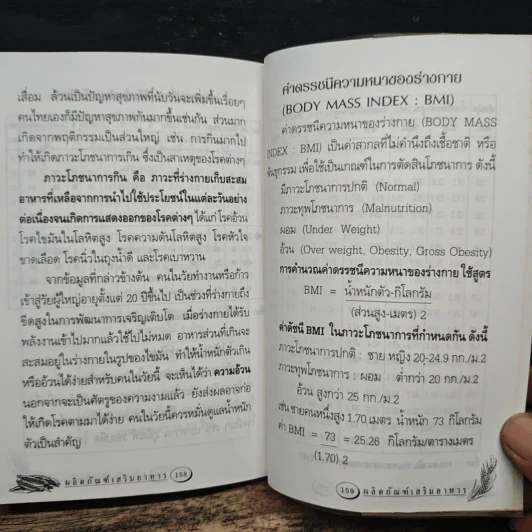 เสื่อม ล้วนเป็นปัญหาสุขภาพที่นับวันจะเพิ่มขึ้นเรื่อยๆ
คนไทยเองก็มีปัญหาสุขภาพกันมากขึ้นเช่นกัน ส่วนมาก
เกิดจากพฤติกรรมเป็นส่วนใหญ่ เช่น การกินมากไป
ทำให้เกิดภาวะโภชนาการเกิน ซึ่งเป็นสาเหตุของโรคต่างๆ
ภาวะโภชนาการเกิน คือ ภาวะที่ร่างกายเก็บสะสม
อาหารที่เหลือจากการนำไปใช้ประโยชน์ในแต่ละวันอย่าง
ต่อเนื่องจนเกิดการแสดงออกของโรคต่างๆ ได้แก่ โรคอ้วน
โรคไขมันในโลหิตสูง โรคความดันโลหิตสูง โรคหัวใจ
ขาดเลือด โรคนิ่วในถุงน้ำดี และโรคเบาหวาน
จากข้อมูลที่กล่าวข้างต้น คนในวัยทำงานหรือก้าว
เข้าสู่วัยผู้ใหญ่อายุตั้งแต่ 20 ปีขึ้นไป เป็นช่วงที่ร่างกายถึง
ขีดสูงในการพัฒนาการเจริญเติบโต เมื่อร่างกายได้รับ
พลังงานเข้าไปมากแล้วใช้ไปไม่หมด อาหารส่วนที่เกินจะ
สะสมอยู่ในร่างกายในรูปของไขมัน ทำให้น้ำหนักตัวเกิน
หรืออ้วนได้ง่ายสำหรับคนในวัยนี้ จะเห็นได้ว่า ความอ้วน
นอกจากจะเป็นศัตรูของความงามแล้ว ยังส่งผลอาจก่อ
ให้เกิดโรคตามมาได้ง่าย คนในวัยนี้ควรหมั่นดูแลน้ำหนัก
ตัวเป็นสำคัญ
ผลิตภัณฑ์เสริมอาหาร 158
ค่าดรรชนีความหนาของร่างกาย
(BODY MASS INDEX : BMI)
ค่าดรรชนีความหนาของร่างกาย (BODY MASS
INDEX : BMI) เป็นค่าสากลที่ไม่คำนึงถึงเชื้อชาติ หรือ
พันธุกรรม เพื่อใช้เป็นเกณฑ์ในการตัดสินโภชนาการ ดังนี้
มีภาวะโภชนาการปกติ (Normal)
ภาวะทุพโภชนาการ (Malnutrition)
ผอม (Under Weight)
อ้วน (Over weight, Obesity, Gross Obesity)
การคำนวณค่าดรรชนีความหนาของร่างกาย ใช้สูตร
BMI = น้ำหนักตัว-กิโลกรัม
(ส่วนสูง-เมตร) 2
ค่าดัชนี BMI ในภาวะโภชนาการที่กำหนดกัน ดังนี้
ภาวะโภชนาการปกติ : ชาย หญิง 20-24.9 กก./ม.2
ภาวะทุพโภชนาการ : ผอม ต่ำกว่า 20 กก./ม.2
อ้วน สูงกว่า 25 กก./ม.2
เช่น ชายคนหนึ่งสูง 1.70 เมตร น้ำหนัก 73 กิโลกรัม
ค่า BMI = 73 = 25.26 กิโลกรัม/ตารางเมตร
(1.70) 2
159 ผลิตภัณฑ์เสริมอาหาร